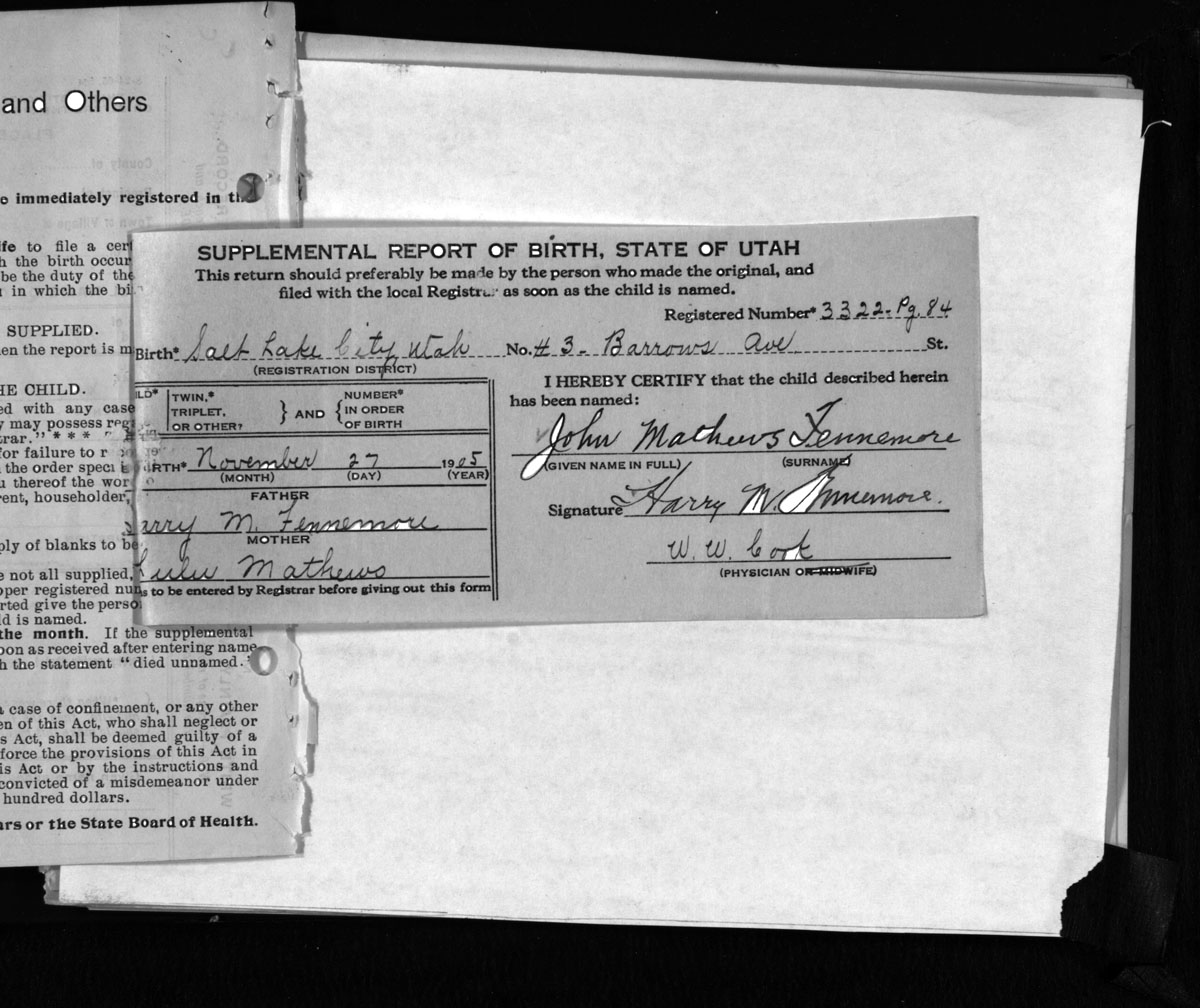 and Others
e immediately registered in th
ife to file a cert
h the birth occur
be the duty of the
in which the bi
SUPPLIED.
en the report is m
HE CHILD.
ed with any case
y may possess reg
trar." * * *
for failure to r
the order speci
u thereof the wor
rent, householder,
ply of blanks to be
e not all supplied,
oper registered nu
rted give the perso
ld is named.
the month. If the supplemental
oon as received after entering name
h the statement "died unnamed."
a case of confinement, or any other
en of this Act, who shall neglect or
s Act, shall be deemed guilty of a
force the provisions of this Act in
is Act or by the instructions and
convicted of a misdemeanor under
hundred dollars.
ars or the State Board of Health.
SUPPLEMENTAL REPORT OF BIRTH, STATE OF UTAH
This return should preferably be made by the person who made the original, and
filed with the local Registrar as soon as the child is named.
Registered Number* 3322-Pg.84
Birth* Salt Lake City Utah No. # 3- Barrows Ave St.
(REGISTRATION DISTRICT)
ILD* TWIN,* TRIPLET, OR OTHER? } AND { NUMBER* IN ORDER OF BIRTH
IRTH* November 27 1905
(MONTH) (DAY) (YEAR)
FATHER
Harry M. Fennemore
MOTHER
Lulu Mathews
s to be entered by Registrar before giving out this form
I HEREBY CERTIFY that the child described herein
has been named:
John Mathews Fennemore
(GIVEN NAME IN FULL) (SURNAME)
Signature Harry M. Fennemore.
W. W. Cook
(PHYSICIAN OR MIDWIFE)